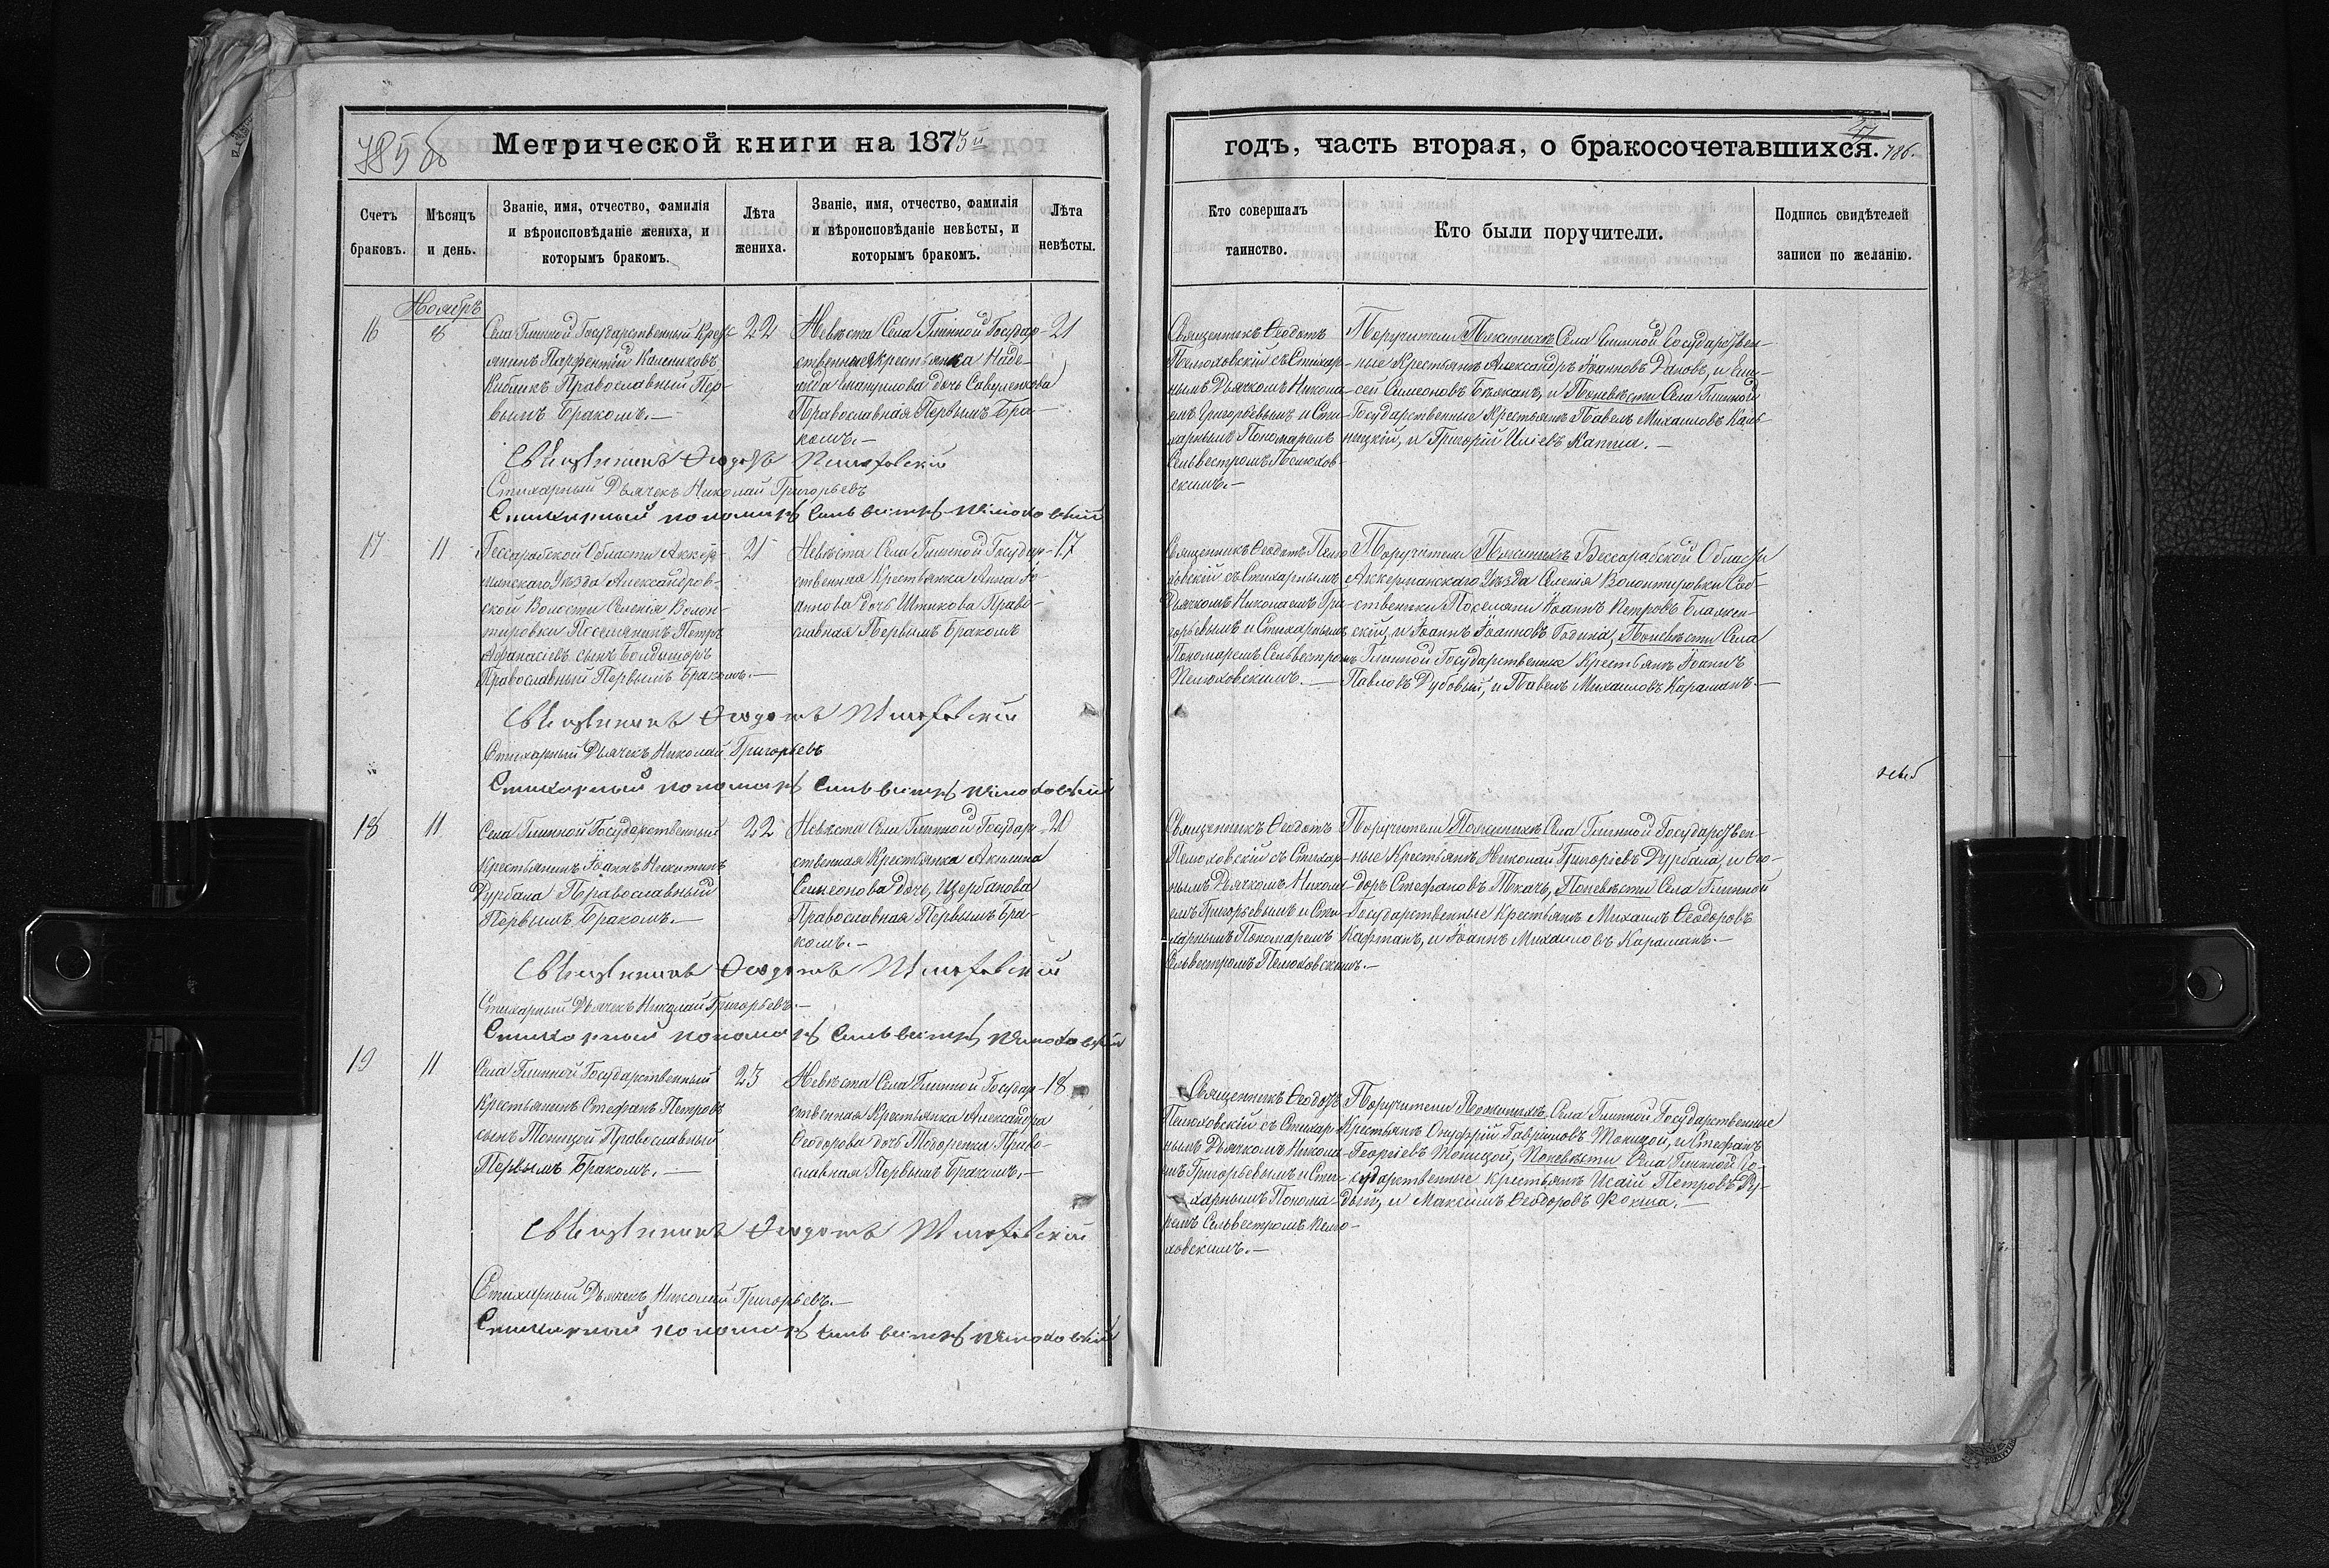 785 об
Метрической книги на 1873й
Счетъ браковъ.
Мѣсяцъ и день.
Званіе, имя, отчество, фамилія и вѣроисповѣданіе жениха, и которымъ бракомъ.
Лѣта жениха.
Званіе, имя, отчество, фамилія и вѣроисповѣданіе невѣсты, и которымъ бракомъ.
Лѣта невѣсты.
Ноябрь
16
8
Села Глинной Государственный Крест-
янинъ Парфентій Колесниковъ
Кибикъ Православный Пер-
вымъ Бракомъ.—
22
Невѣста Села Глинной Государ-
ственная Крестьянка Наде-
жда Емануилова дочь Савуленкова
Православная Первымъ Бра-
комъ.—
21
Священникъ Ѳеодотъ Пелюховскій
Стихарный Дьячекъ Николай Григорьевъ
Стихарный пономарь Сильвестръ Пелюховскій
17
11
Бессарабской Области Аккер-
манскаго Уѣзда Александров-
ской Волости Селенія Волон-
тировки Поселянинъ Петръ
Афанасіевъ сынъ Болдышоръ
Православный Первымъ Бракомъ.—
21
Невѣста Села Глинной Государ-
ственная Крестьянка Анна Іо-
аннова дочь Штикова Право-
славная Первымъ Бракомъ
17
Священникъ Ѳеодотъ Пелюховскій
Стихарный Дьячекъ Николай Григорьевъ
Стихарный пономарь Сильвестръ Пелюховскій
18
11
Села Глинной Государственный
Крестьянинъ Іоаннъ Никитинъ
Дурбала Православный
Первымъ Бракомъ.—
22
Невѣста Села Глинной Государ-
ственная Крестьянка Акилина
Симеонова дочь Щербанова
Православная Первымъ Бра-
комъ.—
20
Священникъ Ѳеодотъ Пелюховскій
Стихарный Дьячекъ Николай Григорьевъ.—
Стихарный пономарь Сильвестръ Пелюховскій
19
11
Села Глинной Государственный
Крестьянинъ Стефанъ Петровъ
сынъ Топицой Православный
Первымъ Бракомъ.—
23
Невѣста Села Глинной Государ-
ственная Крестьянка Александра
Ѳеодорова дочь Тодоренки Право-
славная Первымъ Бракомъ.—
18
Священникъ Ѳеодотъ Пелюховскій
Стихарный Дьячекъ Николай Григорьевъ.—
Стихарный пономарь Сильвестръ Пелюховскій
годъ, часть вторая, о бракосочетавшихся.
786.
Кто совершалъ таинство.
Кто были поручители.
Подпись свидѣтелей записи по желанію.
Священникъ Ѳеодотъ
Пелюховскій съ Стихар-
нымъ Дьячкомъ Никола-
емъ Григорьевымъ и Сти-
харнымъ Пономаремъ
Сельвестромъ Пелюхов-
скимъ.—
Поручители По женихѣ Села Глинной Государствен-
ные Крестьяне Александръ Іоанновъ Дановъ, и Ели-
сей Симеоновъ Бѣжан, и По невѣсти Села Глинной
Государственные Крестьяне Павелъ Михаиловъ Каль-
ницкій, и Григорій Иліевъ Капша.—
Священникъ Ѳеодотъ Пелю-
ховскій съ Стихарнымъ
Дьячкомъ Николаемъ Гри-
горьевымъ и Стихарнымъ
Пономаремъ Сельвестромъ
Пелюховскимъ.—
Поручители По женихѣ Бессарабской Области
Аккерманскаго Уѣзда Селенія Волонтировки Соб-
ственики Поселяни Іоаннъ Петровъ Блажен-
скій, и Іоаннъ Іоанновъ Година, По невѣсти Села
Глинной Государственные Крестьяне Іоаннъ
Павловъ Дубовый, и Павелъ Михаиловъ Караманъ.—
Священникъ Ѳеодотъ
Пелюховскій съ Стихар-
нымъ Дьячкомъ Никола-
емъ Григорьевымъ и Сти-
харнымъ Пономаремъ
Сельвестромъ Пелюховскимъ.—
Поручители По женихѣ Села Глинной Государствен-
ные Крестьяне, Николай Григоріевъ Дурбала, и Ѳео-
доръ Стефановъ Ткачъ, По невѣсти Села Глинной
Государственные Крестьяне Михаилъ Ѳеодоровъ
Кафтанъ, и Іоаннъ Михаиловъ Караманъ.—
Священникъ Ѳеодотъ
Пелюховскій съ Стихар-
нымъ Дьячкомъ Никола-
емъ Григорьевымъ и Сти-
харнымъ Понома-
ремъ Сельвестромъ Пелю-
ховскимъ.—
Поручители По женихѣ Села Глинной Государственные
Крестьяне Онуфрій Гавріиловъ Топицой, и Стефанъ
Георгіевъ Топицой, По невѣсти Села Глинной Го-
сударственные Крестьяне Исаій Петровъ Ру-
дый, и Максимъ Ѳеодоровъ Фокша.—